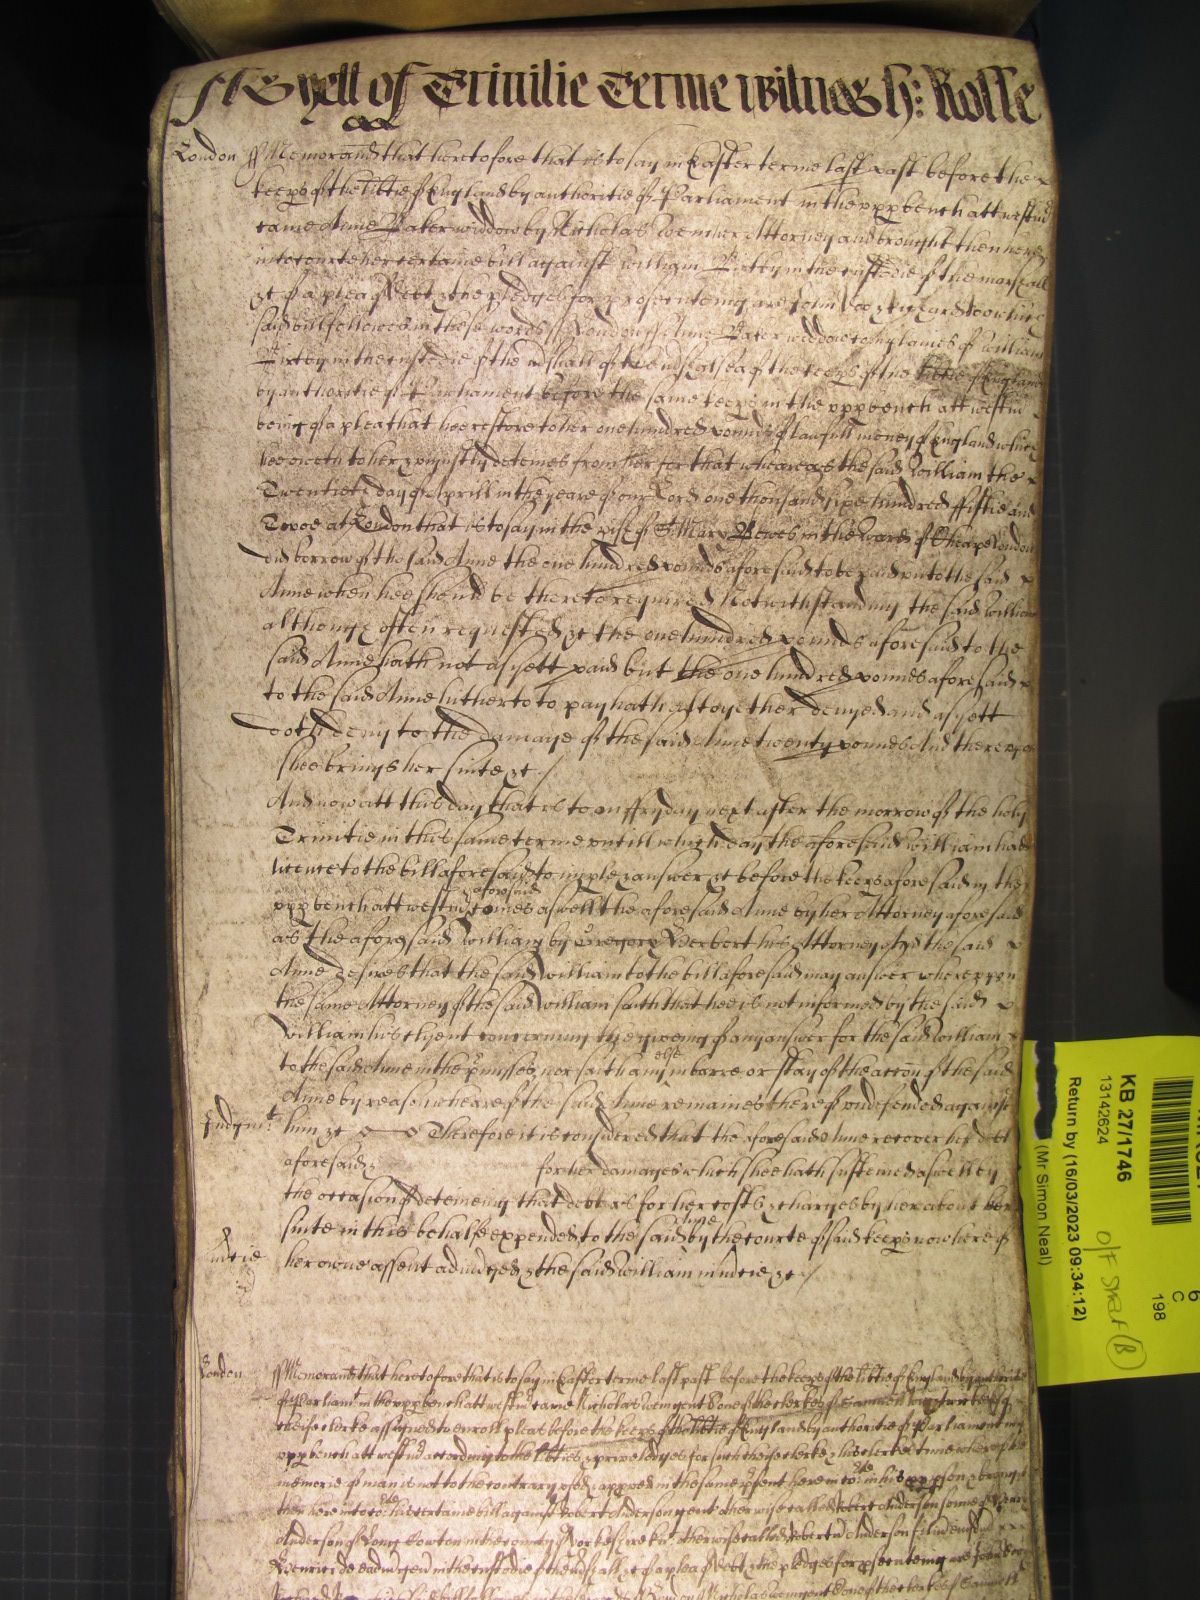 As yett of Trinitie Terme Witnes H: Rolle
London ss Memorand that heretofore that is to say in Easter terme last past before the
keeps of the libtie of England by authoritie of Parliament in the upp bench att westm
came Anne Baker widdow by Nicholas Attorney and brought then here
into courte her certaine bill against William in the custodie of the marshall
&c of a plea of Debt & the pledges for prosecuteing are John Doo & Richard Roo which
said bill followes in these words ss London ss Anne Baker widdow complaines of William
in the custodie of the mshall of the mshalsea of the keeps of the libtie of England
by authoritie of Parliament before the same keeps in the upp bench att westm
being of a plea that hee restore to her one hundred pounds of lawfull money of England which
hee oweth to her & uniustly deteines from her for that whereas the said William the
Twentieth day of Aprill in the yeare of our Lord one thousand sixe hundred ffiftie and
Twoe at London that is to say in the pish of St Mary Bowe in the ward of Cheape London
did borrow of the said Anne the one hundred pounds aforesaid to be paid unto the said
Anne when hee should be thereto required Notwithstanding the said William
although often requested &c the one hundred pounds aforesaid to the
said Anne hath not as yett paid but the one hundred pounds aforesaid
to the said Anne hitherto to pay hath altogether denyed and as yett
doth deny to the damage of the said Anne twenty pounds And thereupon
shee brings her suite &c /
And now att this day that is to on ffryday next after the morrow of the holy
Trinitie in this same terme untill which day the aforesaid William had
licence to the bill aforesaid to imple & answer &c before the keeps aforesaid in the
aforesaid
upp bench att westm comes aswell the aforesaid Anne by her Attorney aforesaid
as the aforesaid William by Gregory Herbert his Attorney And the said
Anne desires that the said William to the bill aforesaid may answer whereupon
the same Attorney of the said William saith that hee is not informed by the said
William his clyent concerning the giveing of any answer for the said William
else
to the said Anne in the pmisses nor saith any in barre or stay of the accon of the said
Anne by reason whereof the said Anne remaines thereof undefended against
Iudgmt him &c Therefore it is considered that the aforesaid Anne recover her debt
aforesaid & for her damages which shee hath susteined aswell by
the occasion of deteineing that debt as for her costs & charges by her about her
Anne
suite in this behalfe expended to the said by the courte of said keeps now here of
mcie her owne assent adiudged & the said William in mcie &c /
London ss Memorand that heretofore that is to say in Easter terme last past before the keeps of the libtie of England by authoritie
of Parliamt in the upp bench att westm came Nicholas gent one of the clerkes of Samuell
cheife clerke assigned to enroll pleas before the keeps of the libtie of England by authoritie of Parliament in
upp bench att westm according to the libties & priveledges for such cheife clerke & his clerkes time whereof the
memorie of man is not to the contrary used & approved in the same psent here in co: in his pp pson & brought
then here into co: his certaine bill against Robert Anderson gent otherwise called Robert Anderson sonne of Henry
Anderson of Long Cowton in the county of Yorke otherwise called Robertu Anderson
Henrici de eadm in the custodie of the mshall &c of a plea of Debt & the pledges for psecuteing are John Doo
KB 27/1746
13142624
Return by (16/03/2023 09:34:12)
(Mr Simon Neal)
O/F
B
6
C
198